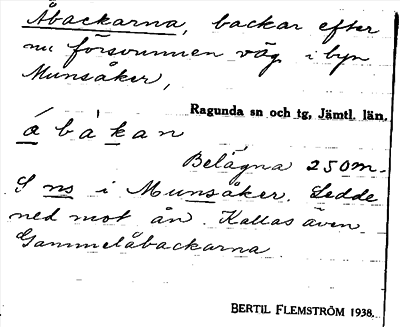 Åbackarna, backar efter
nu försvunnen väg i byn
Munsåker,
Ragunda sn och tg, Jämtl. län.
á b à k a n
Belägna 250 m.
S ns i Munsåker. Ledde
ned mot ån. Kallas även
Gammelåbackarna.
BERTIL FLEMSTRÖM 1938.